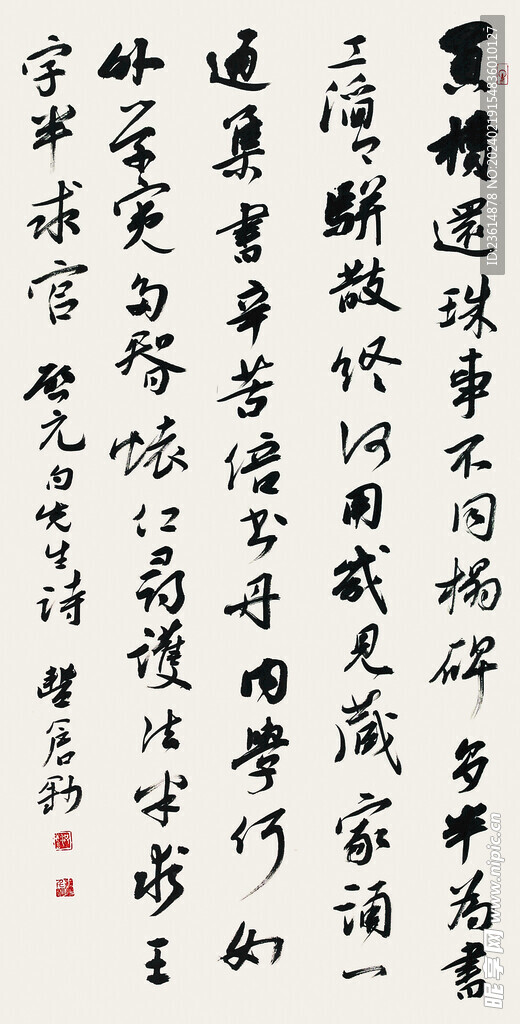 買櫝還珠事不同搨碑多半為書
工滔々駢散終何用幾見藏家誦一
通集書辛苦倍書丹內學何如
外學寬多智懷仁尋護法半求王
字半求官 啟元白先生詩
ID:23614878 NO:20240219154836010127
昵享网 www.nipic.cn